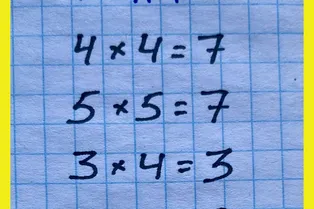 4×4=7
5×5=7
3×4=3